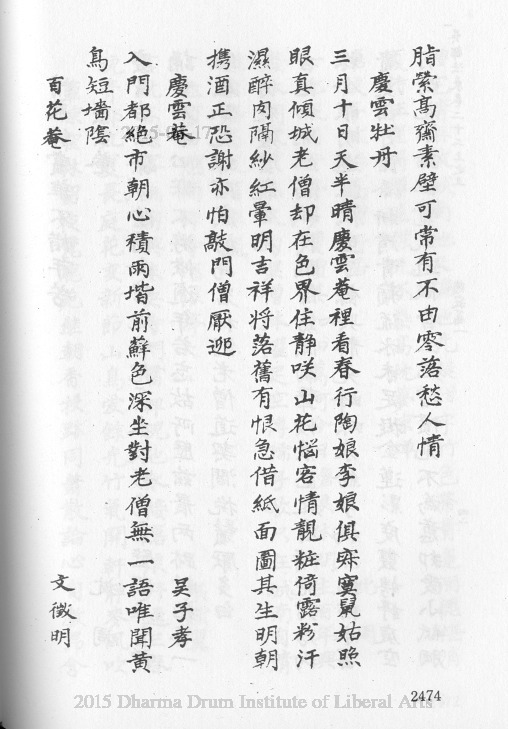 脂縈高齋素壁可常有不由零落愁人情
慶雲牡丹
三月十日天半晴慶雲菴裡看春行陶娘李娘俱寂寞鼠姑照
眼真傾城老僧却在色界住静咲山花惱客情靚粧倚露粉汗
濕醉肉隔紗紅暈明吉祥将落舊有恨急借紙面圖其生明朝
攜酒正恐謝亦怕敲門僧厭迎
慶雲菴 吴子孝
入門都絶市朝心積雨堦前蘚色深坐對老僧無一語唯聞黄
鳥短墻陰
百花菴 文徵明
2474
2015 Dharma Drum Institute of Liberal Arts